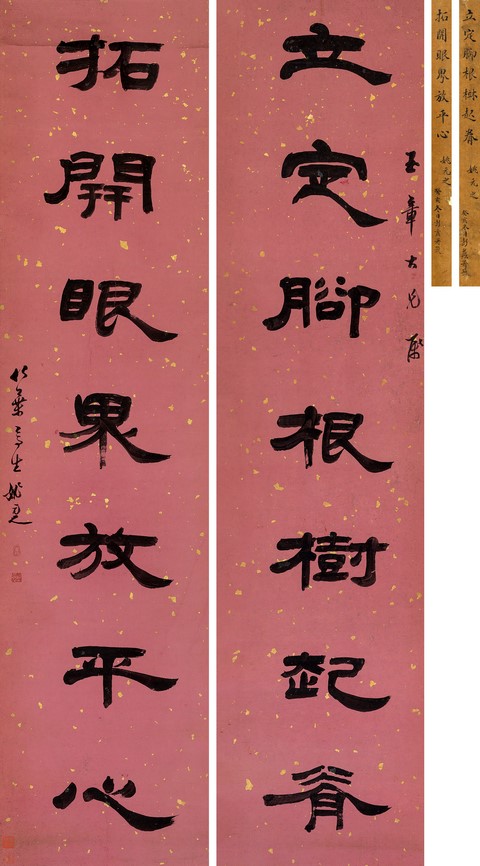 立定腳根樹起脊 姚元之
拓開眼界放平心 姚元之
玉章大兄屬
立定腳根樹起脊
拓開眼界放平心
竹葉亭生姚元之